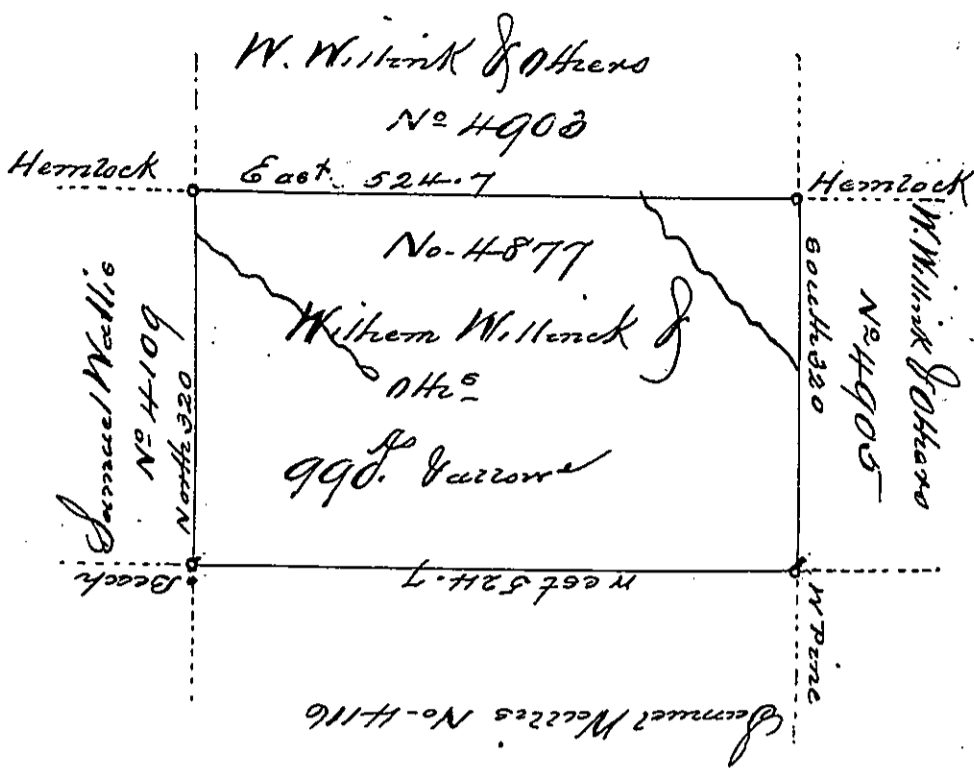 W. Willink & Others
Nº 4903
Hemlock
East. 524.7
Hemlock
No. 4877
Wilhem Willinck &
Othrs
990. As
Samuel Wallis
Nº 4109
North 320
South 320
Nº 4905
W. Willink & Others
Beech
West 524.7
W Pine
Samuel Wallis No. 4116